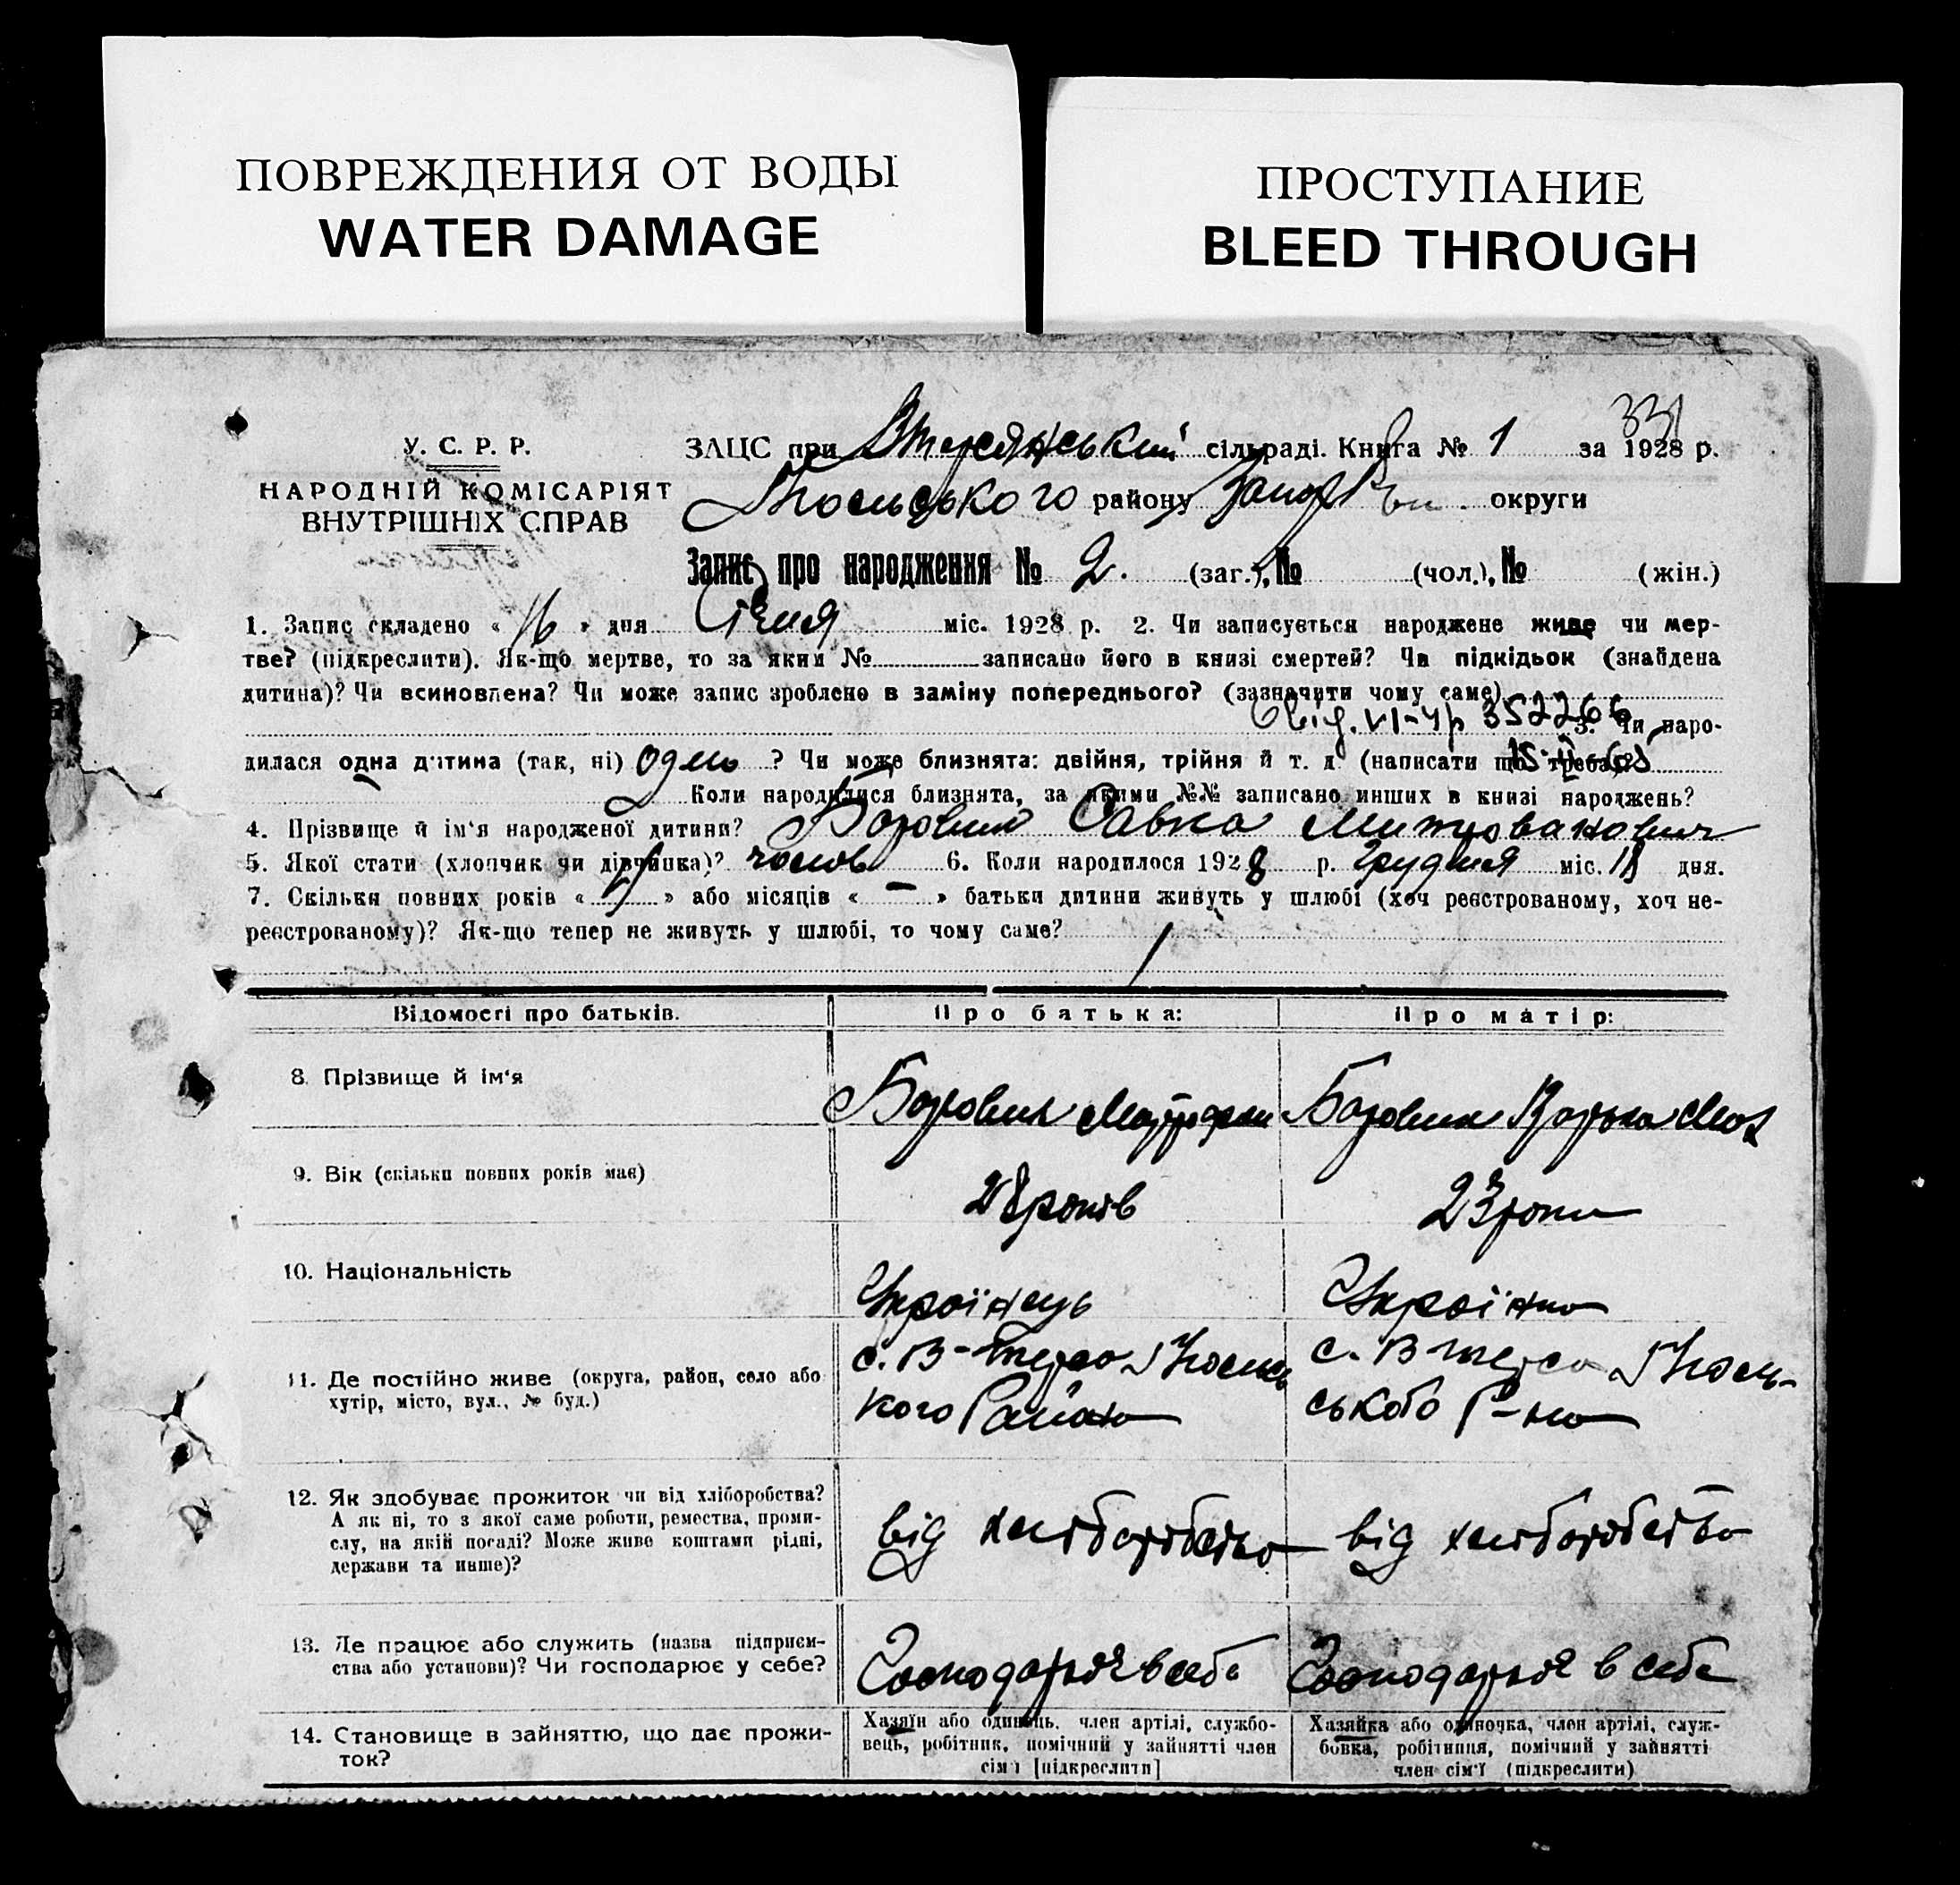 ПОВРЕЖДЕНИЯ ОТ ВОДЫ
WATER DAMAGE
ПРОСТУПАНИЕ
BLEED THROUGH
331
У. С. Р. Р.
НАРОДНІЙ КОМІСАРІЯТ
ВНУТРІШНІХ СПРАВ
ЗАЦС при сільраді. Книга № 1 за 1928 р.
району округи
Запис про народження № 2. (заг.), № (чол.), № (жін.)
1. Запис складено « 16 » дня Січня міс. 1928 р. 2. Чи записується народжене живе чи мер-
тве? (підкреслити). Як-що мертве, то за яким № записано його в книзі смертей? Чи підкідьок (знайдена
дитина)? Чи всиновлена? Чи може запис зроблено в заміну попереднього? (зазначити чому саме)
Свід. VI-ЧР 352266 3. Чи наро-
дилася одна дитина (так, ні) одно ? Чи може близнята: двійня, трійня й т. д. (написати що треба)?
Коли народилися близнята, за якими №№ записано инших в книзі народжень?
4. Прізвище й ім'я народженої дитини? Боровик Савка Митрованович
5. Якої стати (хлопчик чи дівчинка)? чолов 6. Коли народилося 1928 р. Грудня міс. 18 дня.
7. Скільки повних років « » або місяців « – » батьки дитини живуть у шлюбі (хоч реєстрованому, хоч не-
реєстрованому)? Як-що тепер не живуть у шлюбі, то чому саме?
Відомості про батьків. Про батька: Про матір:
8. Прізвище й ім'я Боровик Боровик
9. Вік (скільки повних років має) 28 років 23 роки
10. Національність Українець Українка
11. Де постійно живе (округа, район, село або
хутір, місто, вул., № буд.)
с. В-Терса
кого Району
с. В Терса
ського Р-ну
12. Як здобуває прожиток чи від хліборобства?
А як ні, то з якої саме роботи, ремества, проми-
слу, на якій посаді? Може живе коштами рідні,
держави та инше)?
від хліборобства від хліборобства
13. Де працює або служить (назва підприєм-
ства або установи)? Чи господарює у себе?
Господарює в себе Господарює в себе
14. Становище в зайняттю, що дає прожи-
ток?
Хазяїн або одинець, член артілі, службо-
вець, робітник, помічний у зайнятті член
сім'ї [підкреслити]
Хазяйка або одиночка, член артілі, служ-
бовка, робітниця, помічний у зайнятті
член сім'ї (підкреслити)